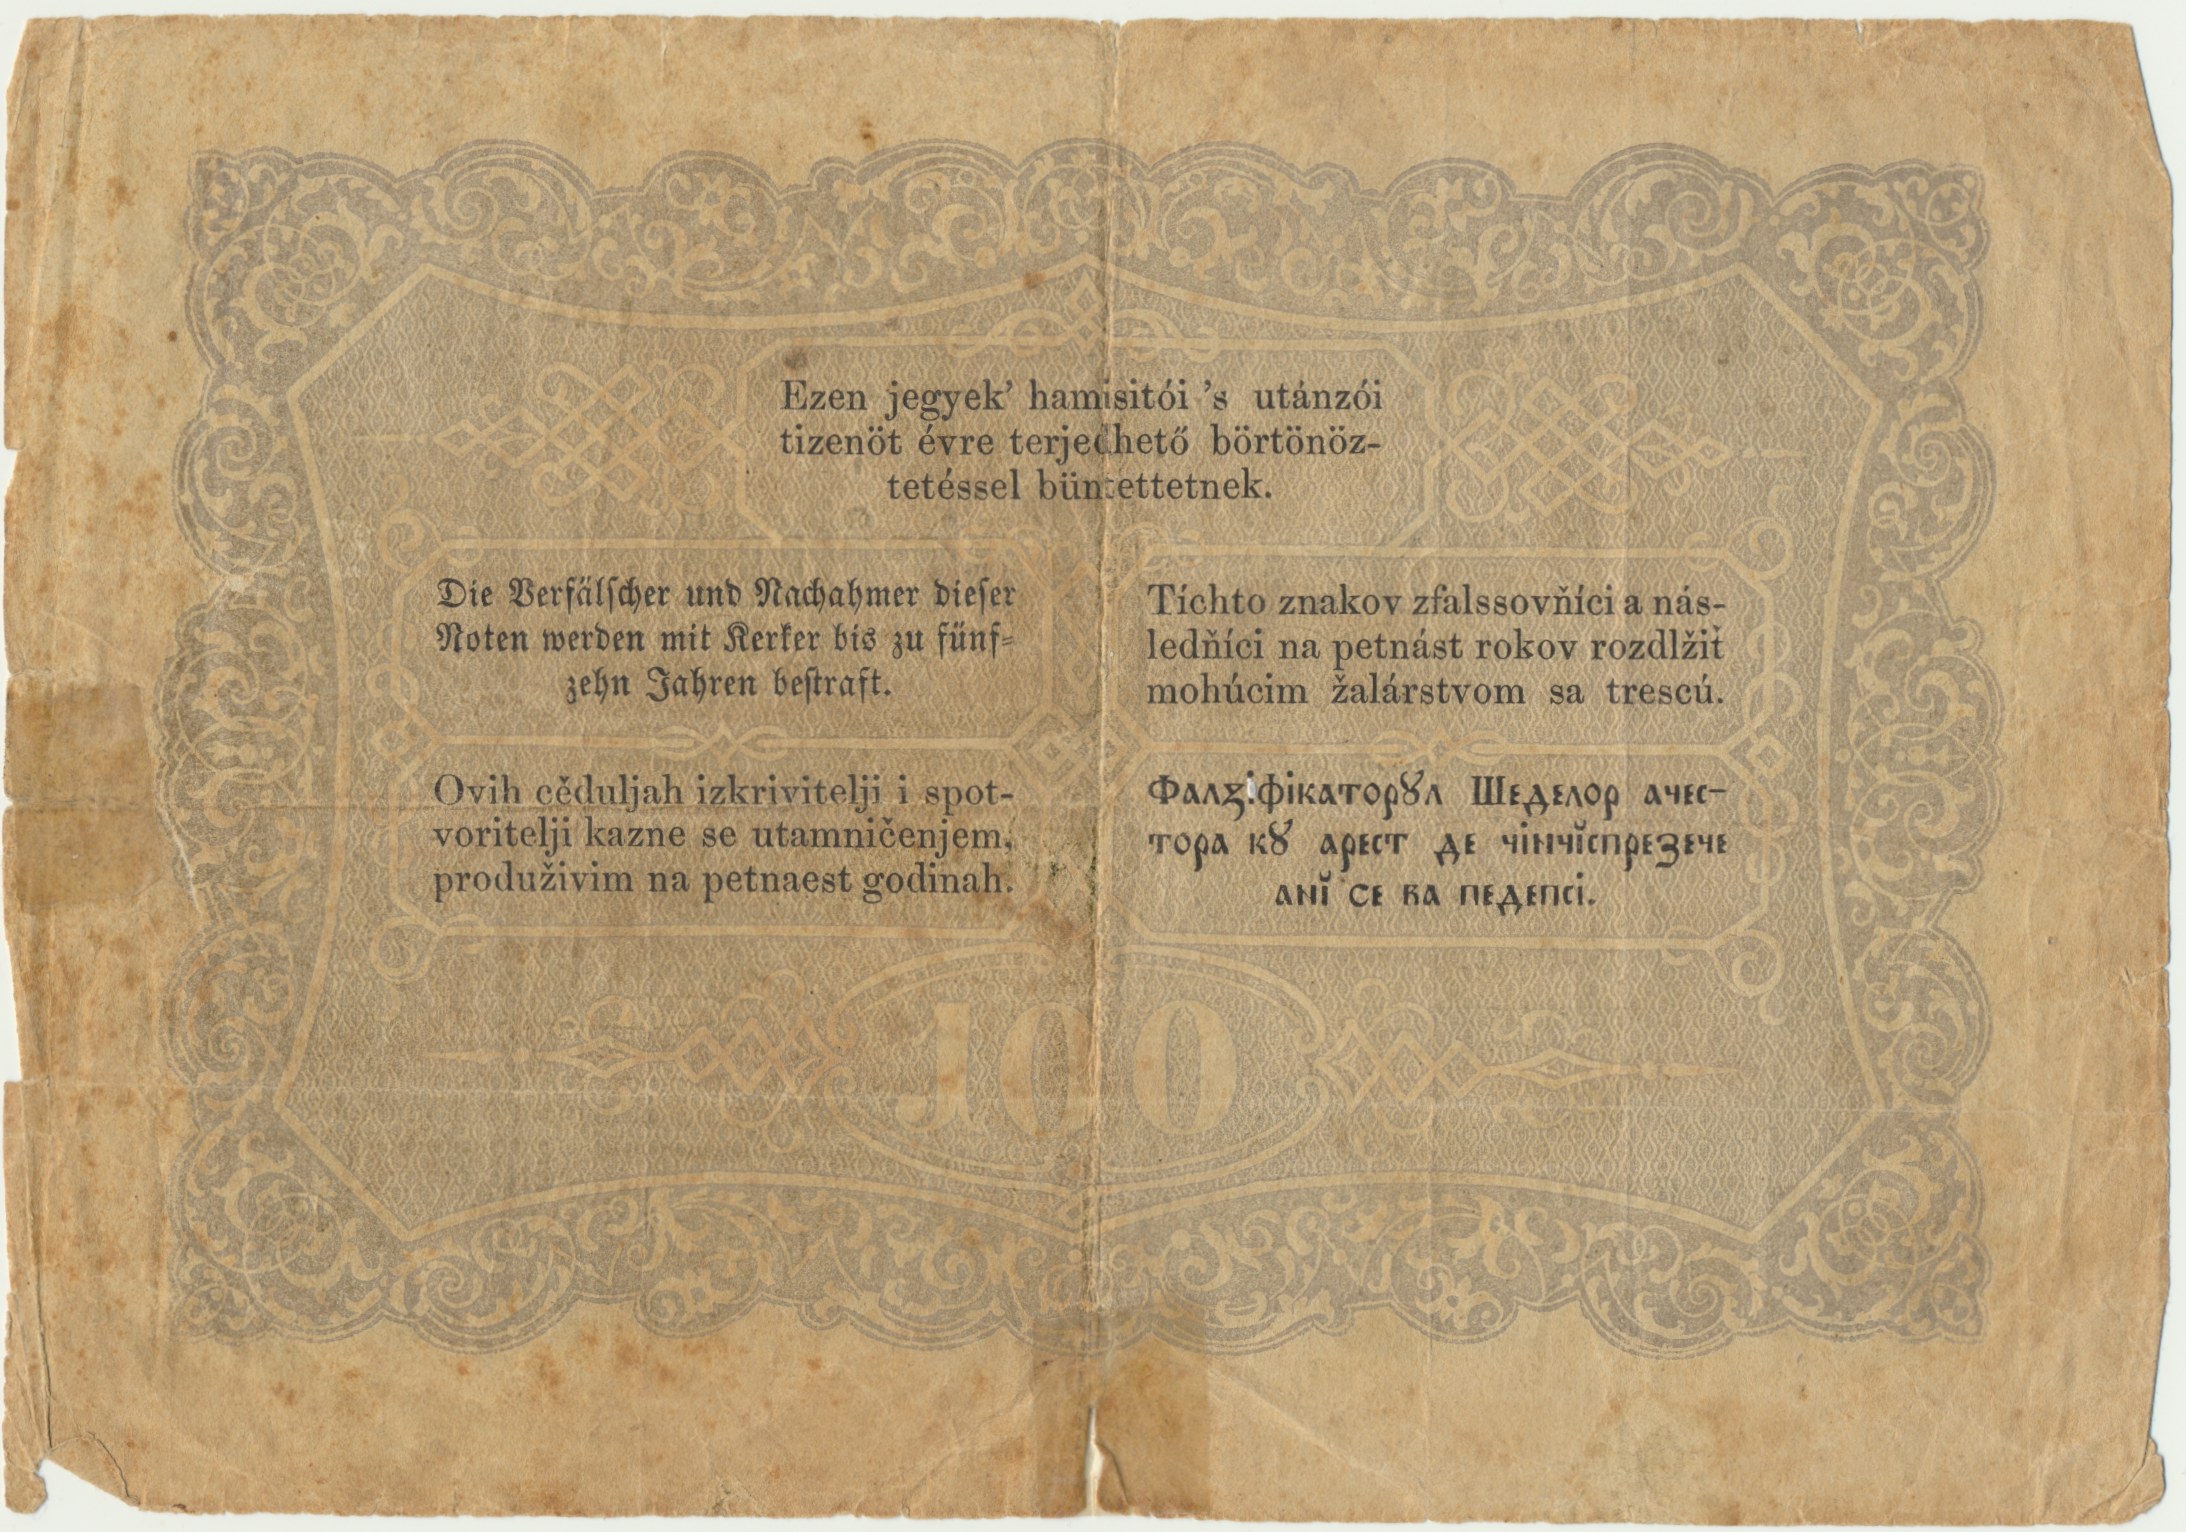 Ezen jegyek’ hamisitói ’s utánzói
tizenöt évre terjedhető börtönöz-
tetéssel büntettetnek.
Die Verfälſcher und Nachahmer dieſer
Noten werden mit Kerker bis zu fünf-
zehn Jahren beſtraft.
Tíchto znakov zfalssovňíci a nás-
ledňíci na petnást rokov rozdlžiť
mohúcim žalárstvom sa trescú.
Ovih cěduljah izkrivitelji i spot-
voritelji kazne se utamničenjem,
produživim na petnaest godinah.
Фалꙁіфікаторꙋл Шеделор ачес-
тора кꙋ арест де чінчĭспрезече
анĭ се ва педепсі.
100